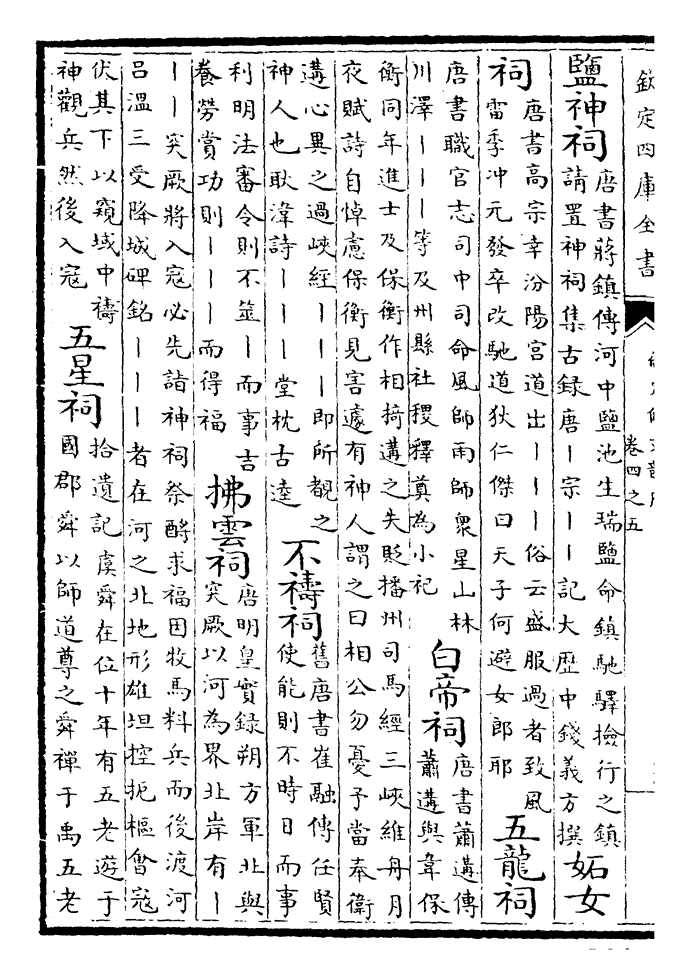 欽定四庫全書
卷四之五
鹽神祠
唐書蔣鎮傳河中鹽池生瑞鹽命鎮馳驛撿行之鎮
請置神祠集古録唐丨宗丨丨記大歴中錢義方撰
妬女
祠
唐書高宗幸汾陽宮道出丨丨丨俗云盛服過者致風
雷季冲元發卒改馳道狄仁傑曰天子何避女郎耶
五龍祠
唐書職官志司中司命風師雨師衆星山林
川澤丨丨丨等及州縣社稷釋奠為小祀
白帝祠
唐書蕭遘傳
蕭遘與韋保
衡同年進士及保衡作相掎遘之失貶播州司馬經三峽維舟月
夜賦詩自悼慮保衡見害遽有神人謂之曰相公勿憂予當奉衛
遘心異之過峽經丨丨丨即所覩之
神人也耿湋詩丨丨丨堂枕古逵
不禱祠
舊唐書崔融傳任賢
使能則不時日而事
利明法審令則不筮丨而事吉
養勞賞功則丨丨丨而得福
拂雲祠
唐明皇實錄朔方軍北與
突厥以河為界北岸有丨
丨丨突厥將入寇必先詣神祠祭酹求福因牧馬料兵而後渡河
呂溫三受降城碑銘丨丨丨者在河之北地形雄坦控扼樞會寇
伏其下以窺域中禱
神觀兵然後入寇
五星祠
拾遺記虞舜在位十年有五老遊于
國郡舜以師道尊之舜禪于禹五老